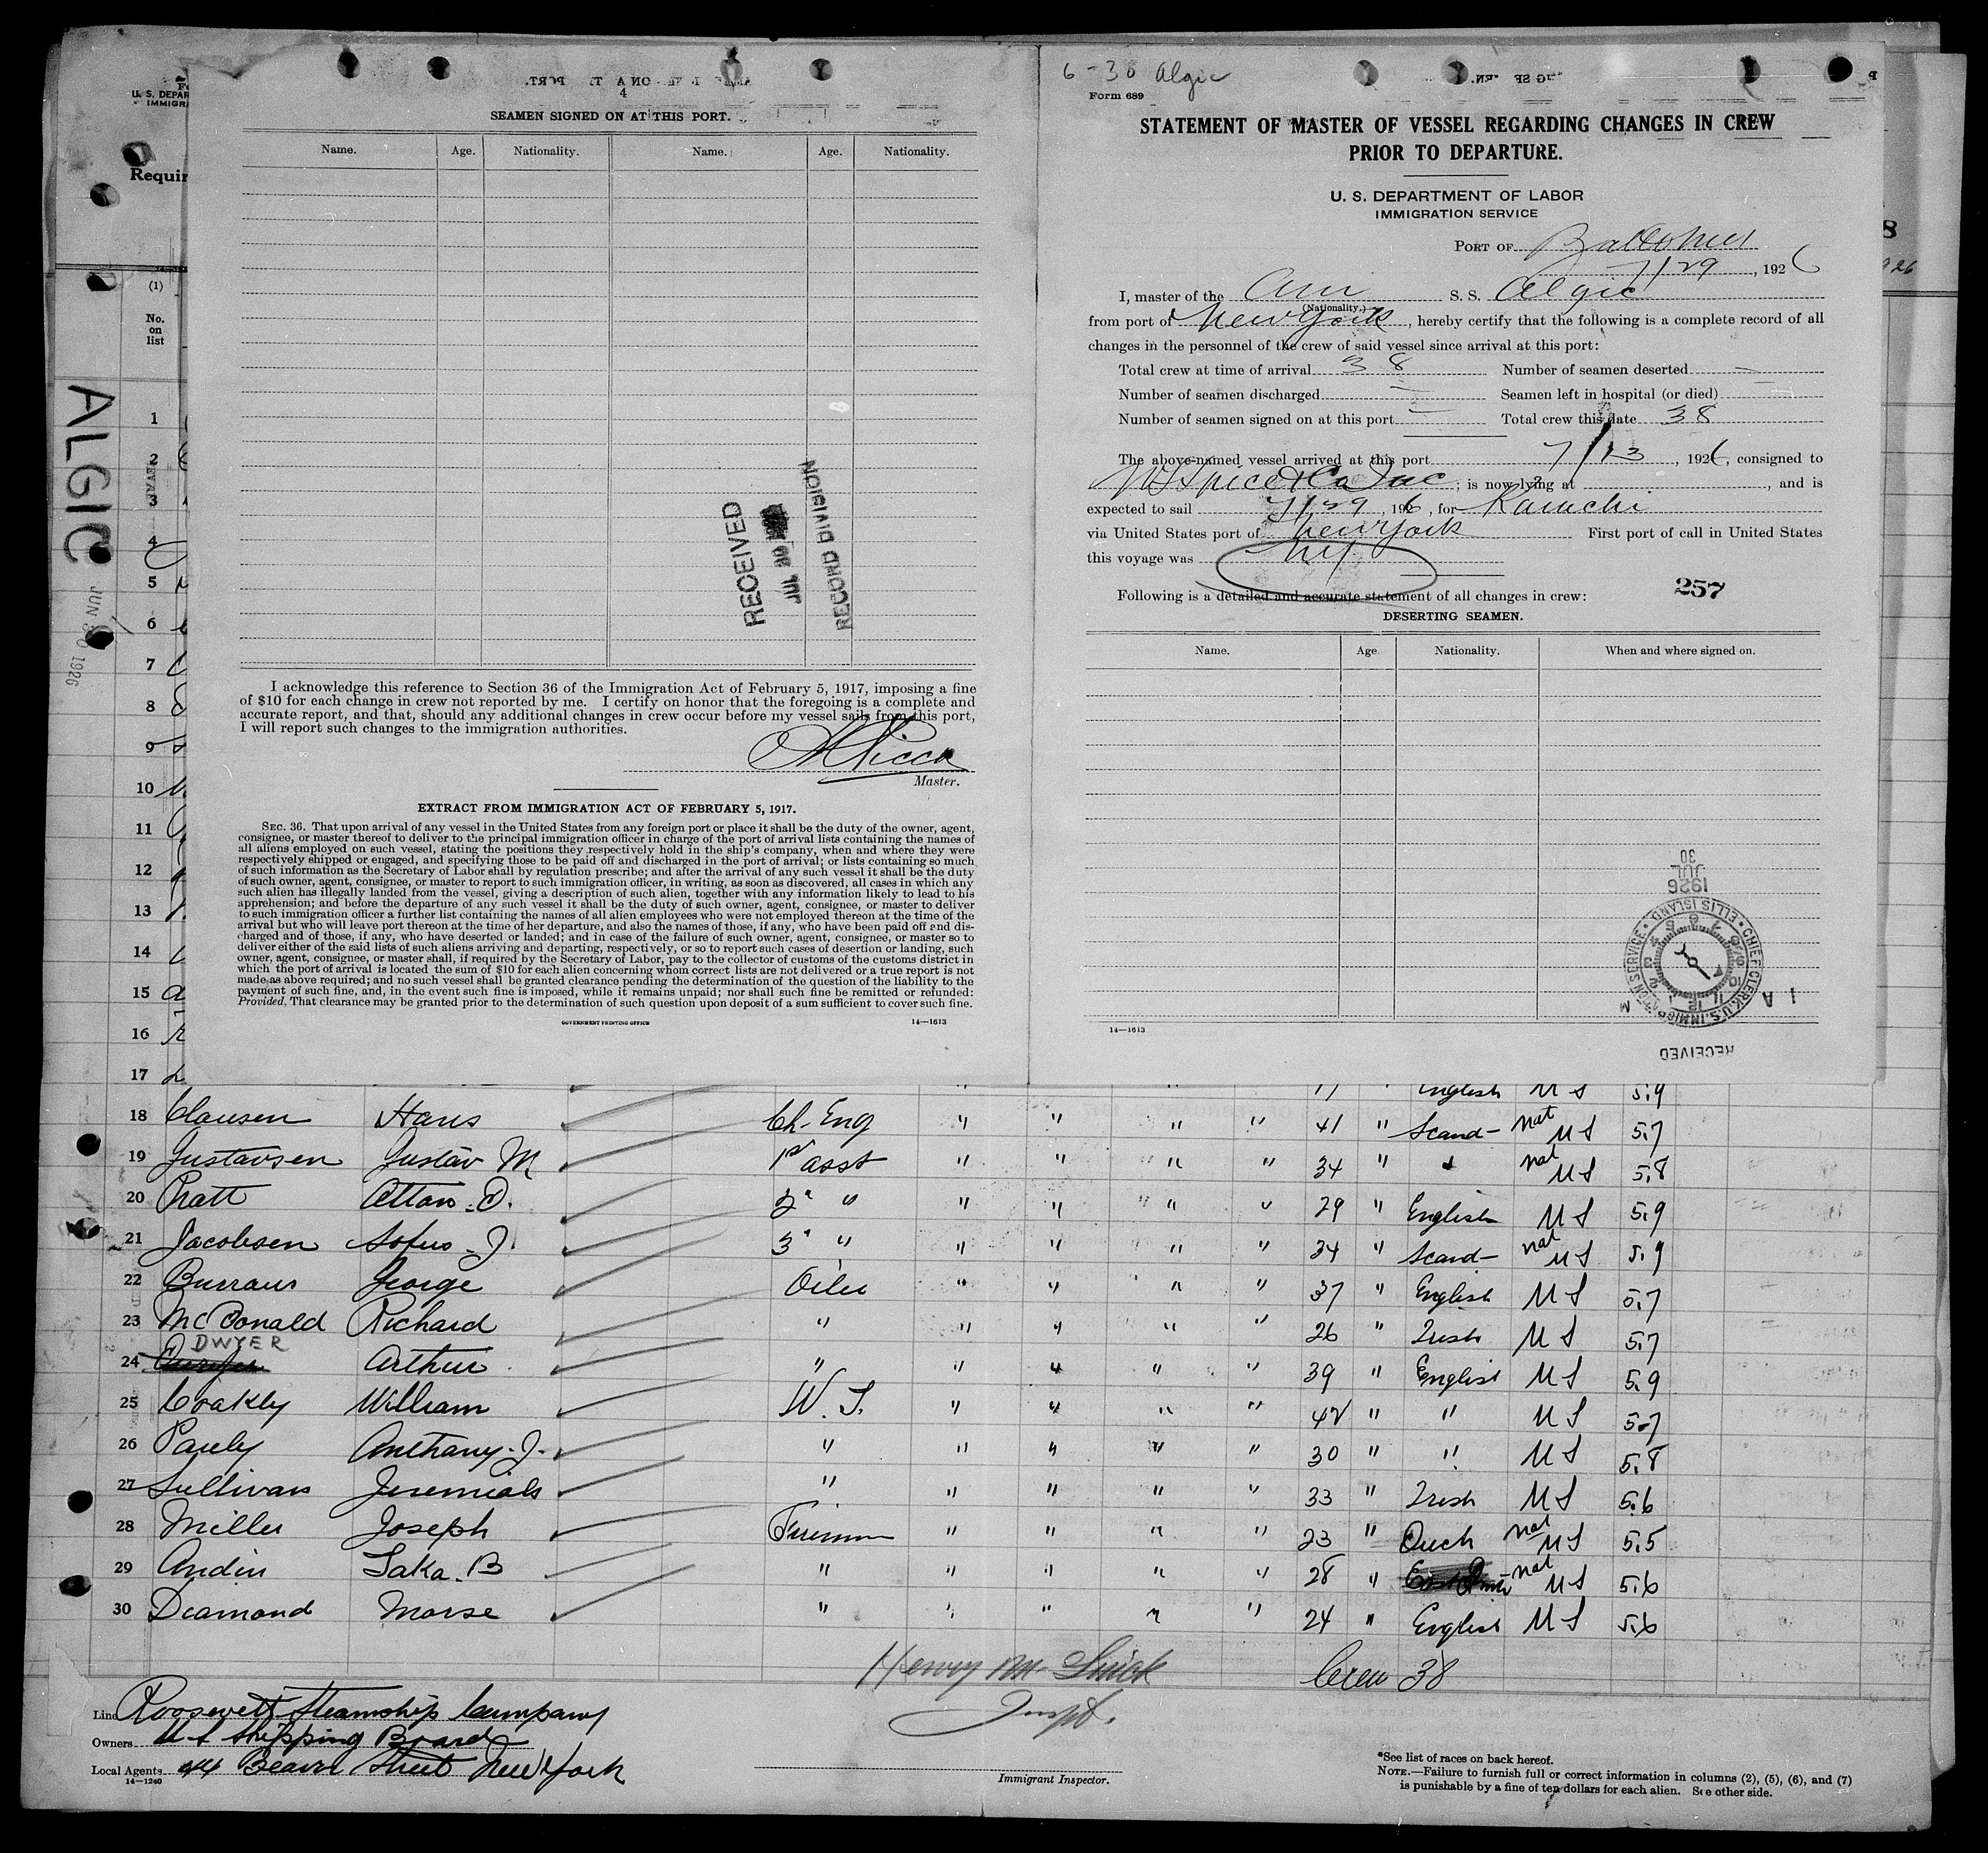 SEAMEN SIGNED ON AT THIS PORT.
4
Name. Age. Nationality. Name. Age. Nationality.
RECEIVED
JUL 30 1926
RECORD DIVISION
I acknowledge this reference to Section 36 of the Immigration Act of February 5, 1917, imposing a fine
of $10 for each change in crew not reported by me. I certify on honor that the foregoing is a complete and
accurate report, and that, should any additional changes in crew occur before my vessel sails from this port,
I will report such changes to the immigration authorities.
Master.
EXTRACT FROM IMMIGRATION ACT OF FEBRUARY 5, 1917.
SEC. 36. That upon arrival of any vessel in the United States from any foreign port or place it shall be the duty of the owner, agent,
consignee, or master thereof to deliver to the principal immigration officer in charge of the port of arrival lists containing the names of
all aliens employed on such vessel, stating the positions they respectively hold in the ship's company, when and where they were
respectively shipped or engaged, and specifying those to be paid off and discharged in the port of arrival; or lists containing so much
of such information as the Secretary of Labor shall by regulation prescribe; and after the arrival of any such vessel it shall be the duty
of such owner, agent, consignee, or master to report to such immigration officer, in writing, as soon as discovered, all cases in which any
such alien has illegally landed from the vessel, giving a description of such alien, together with any information likely to lead to his
apprehension; and before the departure of any such vessel it shall be the duty of such owner, agent, consignee, or master to deliver
to such immigration officer a further list containing the names of all alien employees who were not employed thereon at the time of the
arrival but who will leave port thereon at the time of her departure, and also the names of those, if any, who have been paid off and dis-
charged and of those, if any, who have deserted or landed; and in case of the failure of such owner, agent, consignee, or master so to
deliver either of the said lists of such aliens arriving and departing, respectively, or so to report such cases of desertion or landing, such
owner, agent, consignee, or master shall, if required by the Secretary of Labor, pay to the collector of customs of the customs district in
which the port of arrival is located the sum of $10 for each alien concerning whom correct lists are not delivered or a true report is not
made as above required; and no such vessel shall be granted clearance pending the determination of the question of the liability to the
payment of such fine, and, in the event such fine is imposed, while it remains unpaid; nor shall such fine be remitted or refunded:
Provided, That clearance may be granted prior to the determination of such question upon deposit of a sum sufficient to cover such fine.
GOVERNMENT PRINTING OFFICE 14—1613
6-30 Algic
Form 689
STATEMENT OF MASTER OF VESSEL REGARDING CHANGES IN CREW
PRIOR TO DEPARTURE.
U. S. DEPARTMENT OF LABOR
IMMIGRATION SERVICE
PORT OF Baltimore
7/29, 1926
I, master of the Am S. S. Algic
(Nationality.)
from port of New York, hereby certify that the following is a complete record of all
changes in the personnel of the crew of said vessel since arrival at this port:
Total crew at time of arrival 38 Number of seamen deserted —
Number of seamen discharged — Seamen left in hospital (or died) —
Number of seamen signed on at this port — Total crew this date 38
The above-named vessel arrived at this port 7/13, 1926, consigned to
Spice & Co Inc; is now lying at , and is
expected to sail 7/29, 1926, for Karachi
via United States port of New York First port of call in United States
this voyage was NY
257
Following is a detailed and accurate statement of all changes in crew:
DESERTING SEAMEN.
Name. Age. Nationality. When and where signed on.
RECEIVED
CHIEF CLERK, U.S. IMMIGRATION SERVICE • ELLIS ISLAND
1926
JUL
30
14—1613
U. S. DEPAR
IMMIGRA
Requir
(1)
No.
on
list
ALGIC
JUN 30 1926
1
2
3
4
5
6
7
8
9
10
11
12
13
14
15
16
17 11 " English U S 5.9
18 Clausen Hans Ch. Eng " " " " 41 " Scand- nat U S 5.7
19 Gustavsen Gustav M 1st asst " " " " 34 " " nat U S 5.8
20 Pratt Alton D. 2" " " " " " 29 " English U S 5.9
21 Jacobsen Sofus J. 3" " " " " " 34 " Scand- nat U S 5.9
22 Burraus George Oiler " " " " 37 " English U S 5.7
23 McDonald Richard " " " " " 26 " Irish U S 5.7
DWYER
24 Arthur " " " " " 39 " English U S 5.9
25 Coakley William W. T. " " " " 42 " " U S 5.7
26 Pauly Anthony J. " " " " " 30 " " U S 5.8
27 Sullivan Jeremiah " " " " " 33 " Irish U S 5.6
28 Miller Joseph Fireman " " " " 23 " Duch nat U S 5.5
29 Andin Saka B " " " " " 28 " nat U S 5.6
30 Diamond Morse " " " " " 24 " English U S 5.6
Crew 38
Insp.
Line Roosevelt Steamship Company
Owners U S Shipping Board
Local Agents 44 Beaver Street New York
14—1240
Immigrant Inspector.
*See list of races on back hereof.
NOTE.—Failure to furnish full or correct information in columns (2), (5), (6), and (7)
is punishable by a fine of ten dollars for each alien. See other side.